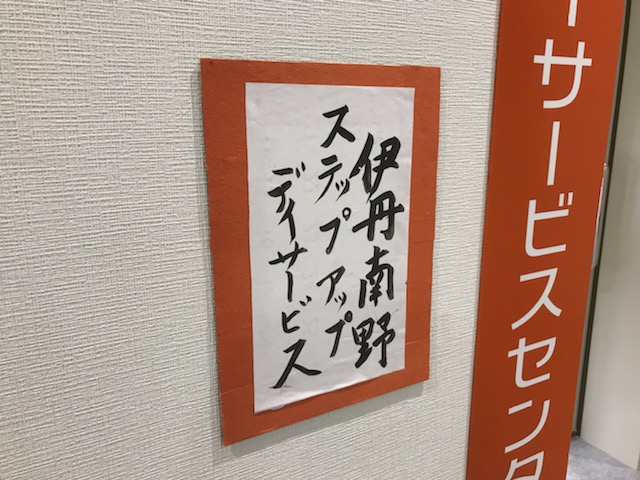 伊丹南野
ステップアップ
デイサービス
ーサービスセンタ